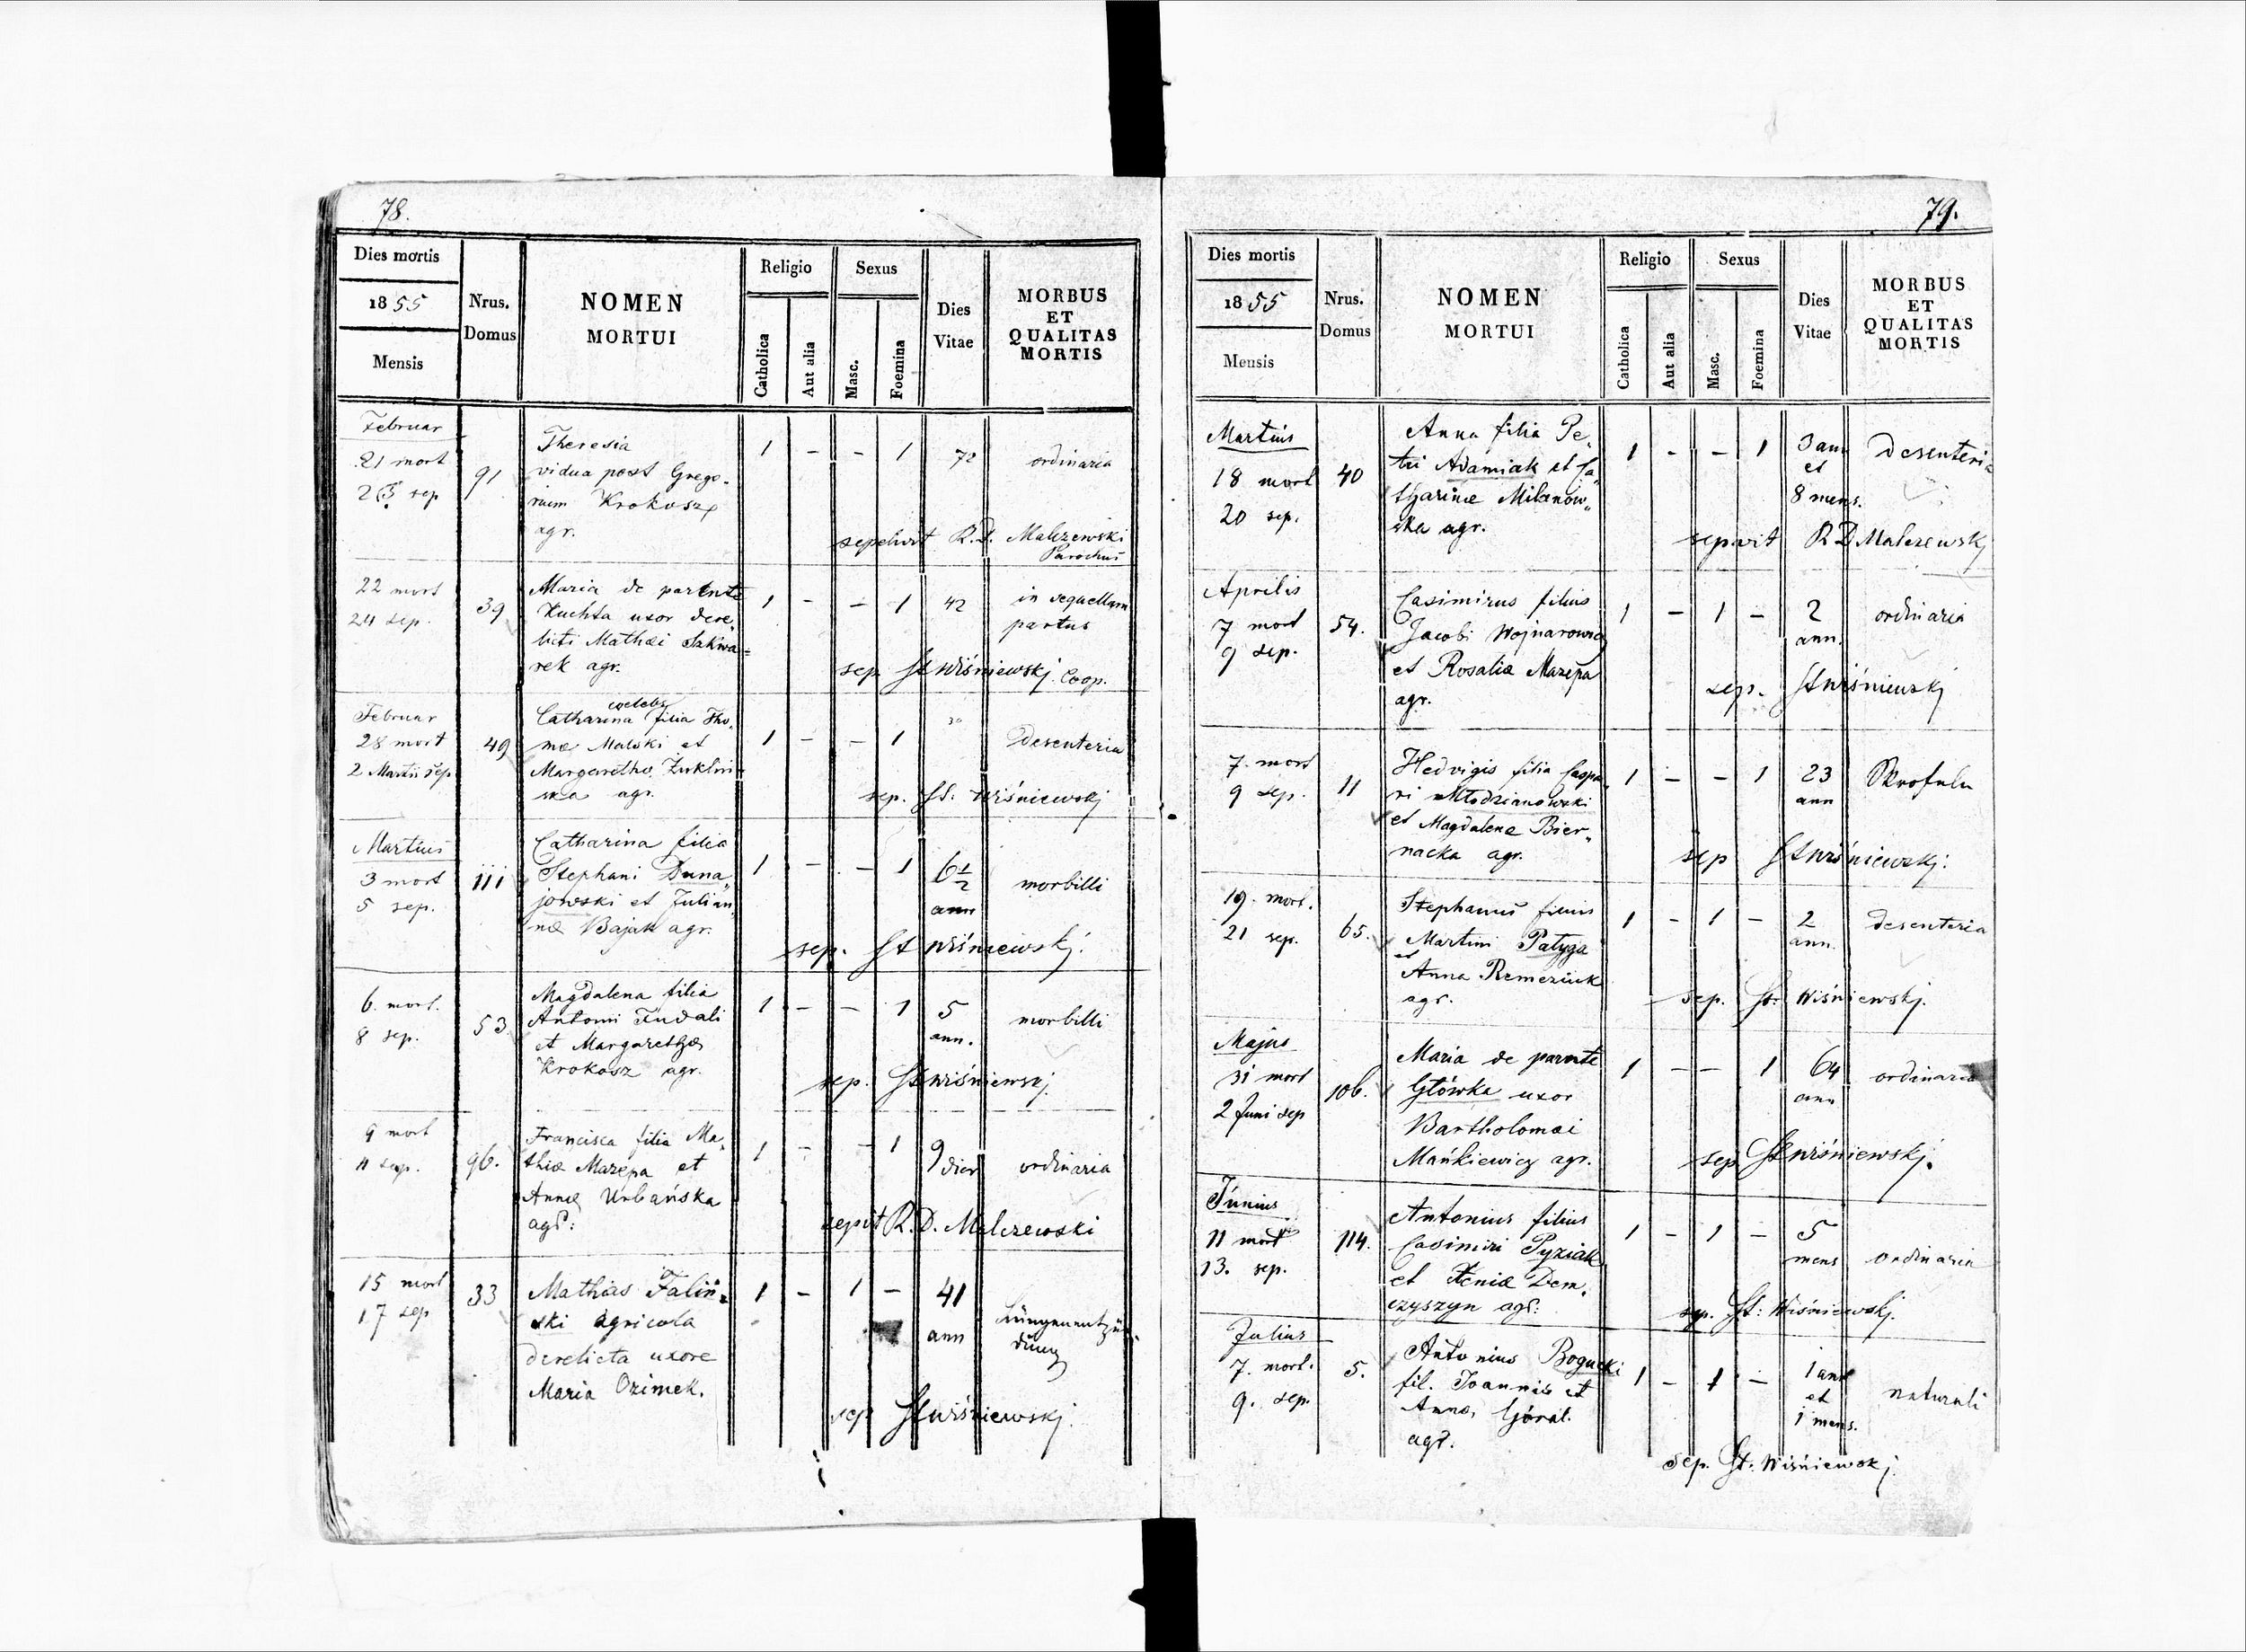 78.
Dies mortis
1855
Mensis
Nrus.
Domus
NOMEN
MORTUI
Religio
Catholica
Aut alia
Sexus
Masc.
Foemina
Dies
Vitae
MORBUS
ET
QUALITAS
MORTIS
Februar
21 mort
23 sep
91
Theresia
vidua post Grego-
rium Krokosz
agr.
1 - - 1
72
ordinaria
sepelivit R.D. Malczewski
Parochus
22 mort
24 sep.
39
Maria de parente
Kuchta uxor dere-
licti Mathæi Szkwa=
rek agr.
1 - - 1
42
in sequellam
partus
sep St Wiśniewskj. Coop.
Februar
28 mort
2 Martii sep
49
coelebs
Catharina filia Tho-
mæ Malski et
Margaretha
agr.
1 - - 1
30
desenteria
sep. St: Wiśniewskj
Martius
3 mort
5 sep.
111
Catharina filia
Stephani Duna„
jowski et Julian„
næ Bajak agr.
1 - - 1
6 1/2
ann
morbilli
sep. St Wiśniewskj.
6. mort.
8 sep.
53
Magdalena filia
Antoni Fudali
et Margarethæ
Krokosz agr.
1 - - 1
5
ann.
morbilli
sep. St Wiśniewskj.
9 mort
11 sep.
96.
Francisca filia Ma-
thiæ Mazepa et
Annæ Urbańska
agr:
1 - - 1
9
dier
ordinaria
sepit R.D. Malczewski
15 mort
17 sep
33
Mathias Faliń=
ski agricola
derelicta uxore
Maria Ozimek.
1 - 1 -
41
ann
Lungenentzün-
dung
sep St Wiśniewskj.
79.
Dies mortis
1855
Mensis
Nrus.
Domus
NOMEN
MORTUI
Religio
Catholica
Aut alia
Sexus
Masc.
Foemina
Dies
Vitae
MORBUS
ET
QUALITAS
MORTIS
Martius
18 mort
20 sep.
40
Anna filia Pe„
tri Adamiak et Ca„
tharinæ Milanow„
ska agr.
1 - - 1
3 ann
et
8 mens.
desenteria
sepivit R D Malczewskj
Aprilis
7 mort
9 sep.
54.
Casimirus filius
Jacobi Wojnarowicz
et Rosaliæ Mazepa
agr.
1 - 1 -
2
ann.
ordinaria
sep. St Wiśniewskj
7. mort
9 sep.
11
Hedvigis filia Caspa„
ri Młodzianowski
et Magdalenæ Bier„
nacka agr.
1 - - 1
23
ann
Skrofuln
sep St Wiśniewskj.
19. mort.
21 sep.
65.
Stephanus filius
Martini Patyga
et
Anna Remeziuk
agr.
1 - 1 -
2
ann.
desenteria
sep. St: Wiśniewskj.
Majus
31 mort
2 Juni sep
106.
Maria de parnte
Główka uxor
Bartholomæi
Mańkiewicz agr.
1 - - 1
64
ann
ordinaria
sep St Wiśniewskj.
Junius
11 mort
13. sep.
114.
Antonius filius
Casimiri Pyziak
et Xeniæ Dem„
czyszyn agr:
1 - 1 -
5
mens
ordinaria
sep. St: Wiśniewskj.
Julius
7. mort.
9. sep.
5.
Antonius Bogucki
fil. Joannis et
Anna, Góral.
agr.
1 - 1 -
1 ann
et
1 mens.
naturali
sep. St: Wiśniewskj.